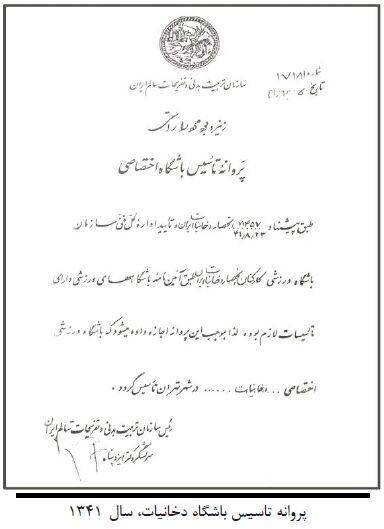 شماره ۱۶/۱۸۱
تاریخ
سازمان تربیت بدنی و تفریحات سالم ایران
پروانه تأسیس باشگاه اختصاصی
طبق پیشنهاد ۲۱۴۵۷ ۴۱/۸/۲۳ انحصار دخانیات ایران و تایید اداره کل فنی سازمان
باشگاه ورزشی کارکنان انحصار دخانیات ایران طبق آئین نامه باشگاههای ورزشی دارای
تأسیسات لازم بوده لذا بموجب این پروانه اجازه داده میشود که باشگاه ورزشی
اختصاصی ... دخانیات ...... در شهر تهران تأسیس گردد .
رئیس سازمان تربیت بدنی و تفریحات سالم ایران
سرلشگر دکتر ایزدپناه
پروانه تاسیس باشگاه دخانیات، سال ۱۳۴۱